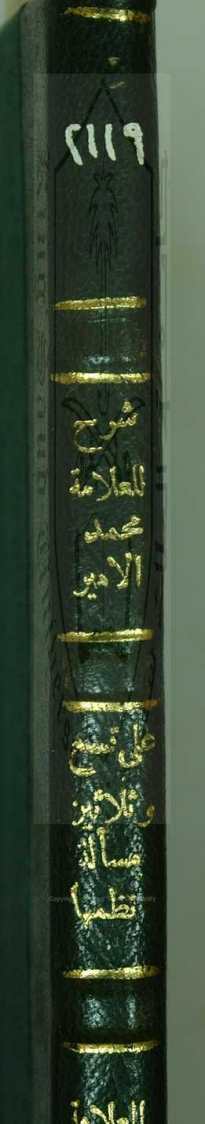 ٢١١٩
شرح
للعلامة
محمد
الامير
على تسع
وثلاثين
مسألة
نظمها
العلامة